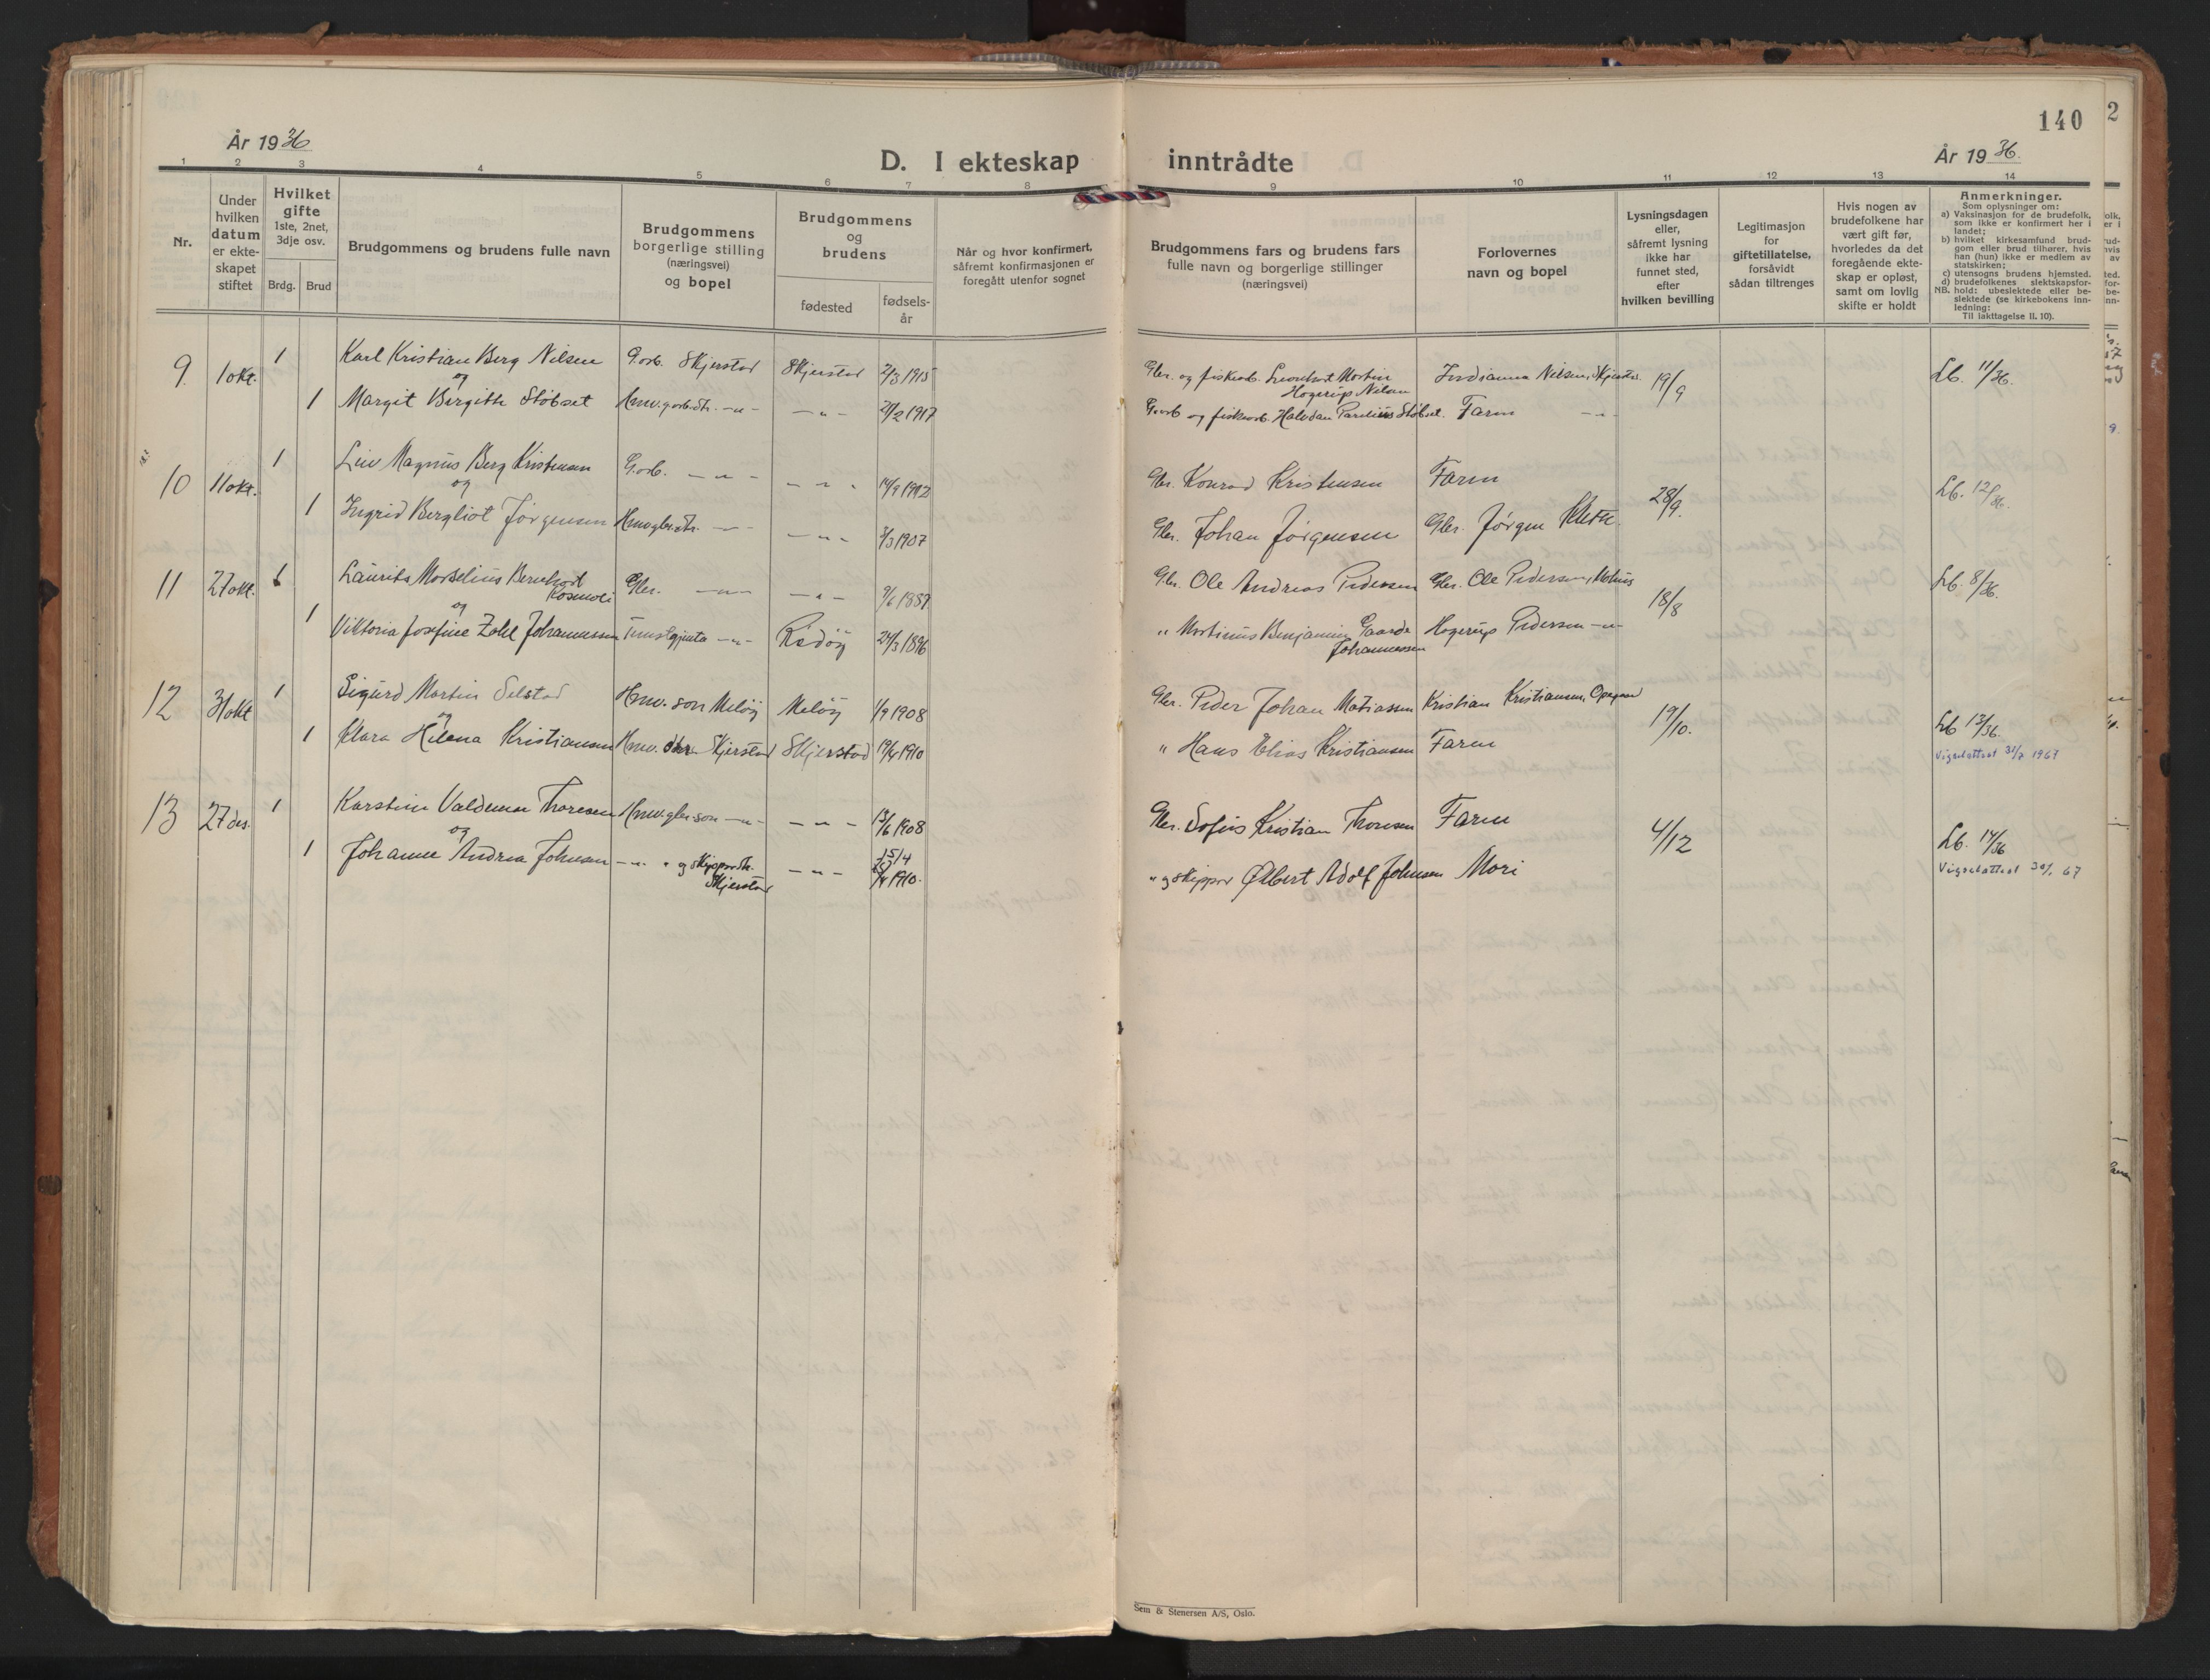 År 1936
D. I ekteskap inntrådte
140
År 1936.
1 2 3 4 5 6 7 8 9 10 11 12 13 14
Nr.
Under hvilken datum er ekteskapet stiftet
Hvilket gifte 1ste, 2net, 3dje osv.
Brdg. Brud
Brudgommens og brudens fulle navn
Brudgommens borgerlige stilling (næringsvei) og bopel
Brudgommens og brudens
fødested
fødsels-år
Når og hvor konfirmert, såfremt konfirmasjonen er foregått utenfor sognet
Brudgommens fars og brudens fars fulle navn og borgerlige stillinger (næringsvei)
Forlovernes navn og bopel
Lysningsdagen eller, såfremt lysning ikke har funnet sted, efter hvilken bevilling
Legitimasjon for giftetillatelse, forsåvidt sådan tiltrenges
Hvis nogen av brudefolkene har vært gift før, hvorledes da det foregående ekteskap er opløst, samt om lovlig skifte er holdt
Anmerkninger.
Som oplysninger om:
a) Vaksinasjon for de brudefolk, som ikke er konfirmert her i landet;
b) hvilket kirkesamfund brudgom eller brud tilhører, hvis han (hun) ikke er medlem av statskirken;
c) utensogns brudens hjemsted.
d) brudefolkenes slektskapsforhold: ubeslektede eller beslektede (se kirkebokens innledning:
NB. Til iakttagelse II. 10).
9. 1 okt. 1 Karl Kristian Berg Nilsen G.arb. Skjerstad Skjerstad 2/3 1915 Gbr. og fiskearb. Leonhart Martin Hagerup Nilsen Indianna Nilsen, Skjerstad 19/9 Lb. 11/36.
og
1 Margit Birgitte Støbset Hmv. garb.dtr. -"- -"- 21/2 1917 G.arb og fiskearb. Halvdan Parelius Støbset. Farm -"-
10 11 okt. 1 Leiv Magnus Berg Kristensen G.arb. -"- -"- 14/9 1912 Gbr. Konrad Kristensen Farm 28/9. Lb. 12/36.
og
1 Ingrid Bergliot Jørgensen Hmv gbr.dtr. -"- -"- 3/3 1907 Gbr. Johan Jørgensen Gbr. Jørgen Kleth.
11 27 okt. 1 Laurits Marselius Bernhart Kosmoli Gbr. -"- -"- 9/6 1887 Gbr. Ole Andreas Pedersen Gbr. Ole Pedersen, 18/8 Lb. 8/36.
og
1 Viktoria Josefine Zahl Johannessen Tenestgjenta -"- Rødøy 24/3 1896 " Martinus Benjamin Gaarde Johannessen Hagerup Pedersen -"-
12 31 okt 1 Sigurd Martin Selstad Hmv. son Meløy Meløy 1/9 1908 Gbr. Peder Johan Matiassen Kristian Kristiansen, 19/10. Lb 13/36.
og
1 Klara Helena Kristiansen Hmv. dtr. Skjerstad Skjerstad 19/4 1910 " Hans Elias Kristiansen Farm Vigselattest 31/7 1967
13 27 des. 1 Karstein Valdemar Thoresen Hmv. gbr. son -"- -"- 13/6 1908 Gbr. Sofus Kristian Thoresen Farm 4/12 Lb. 14/36
og
1 Johanne Andrea Johnsen -"- " og skipperdtr. Skjerstad -"- 15/4 1910. " og skipper Albert Adolf Johnsen Mori Vigselattest 67
Sem & Stenersen A/S, Oslo.